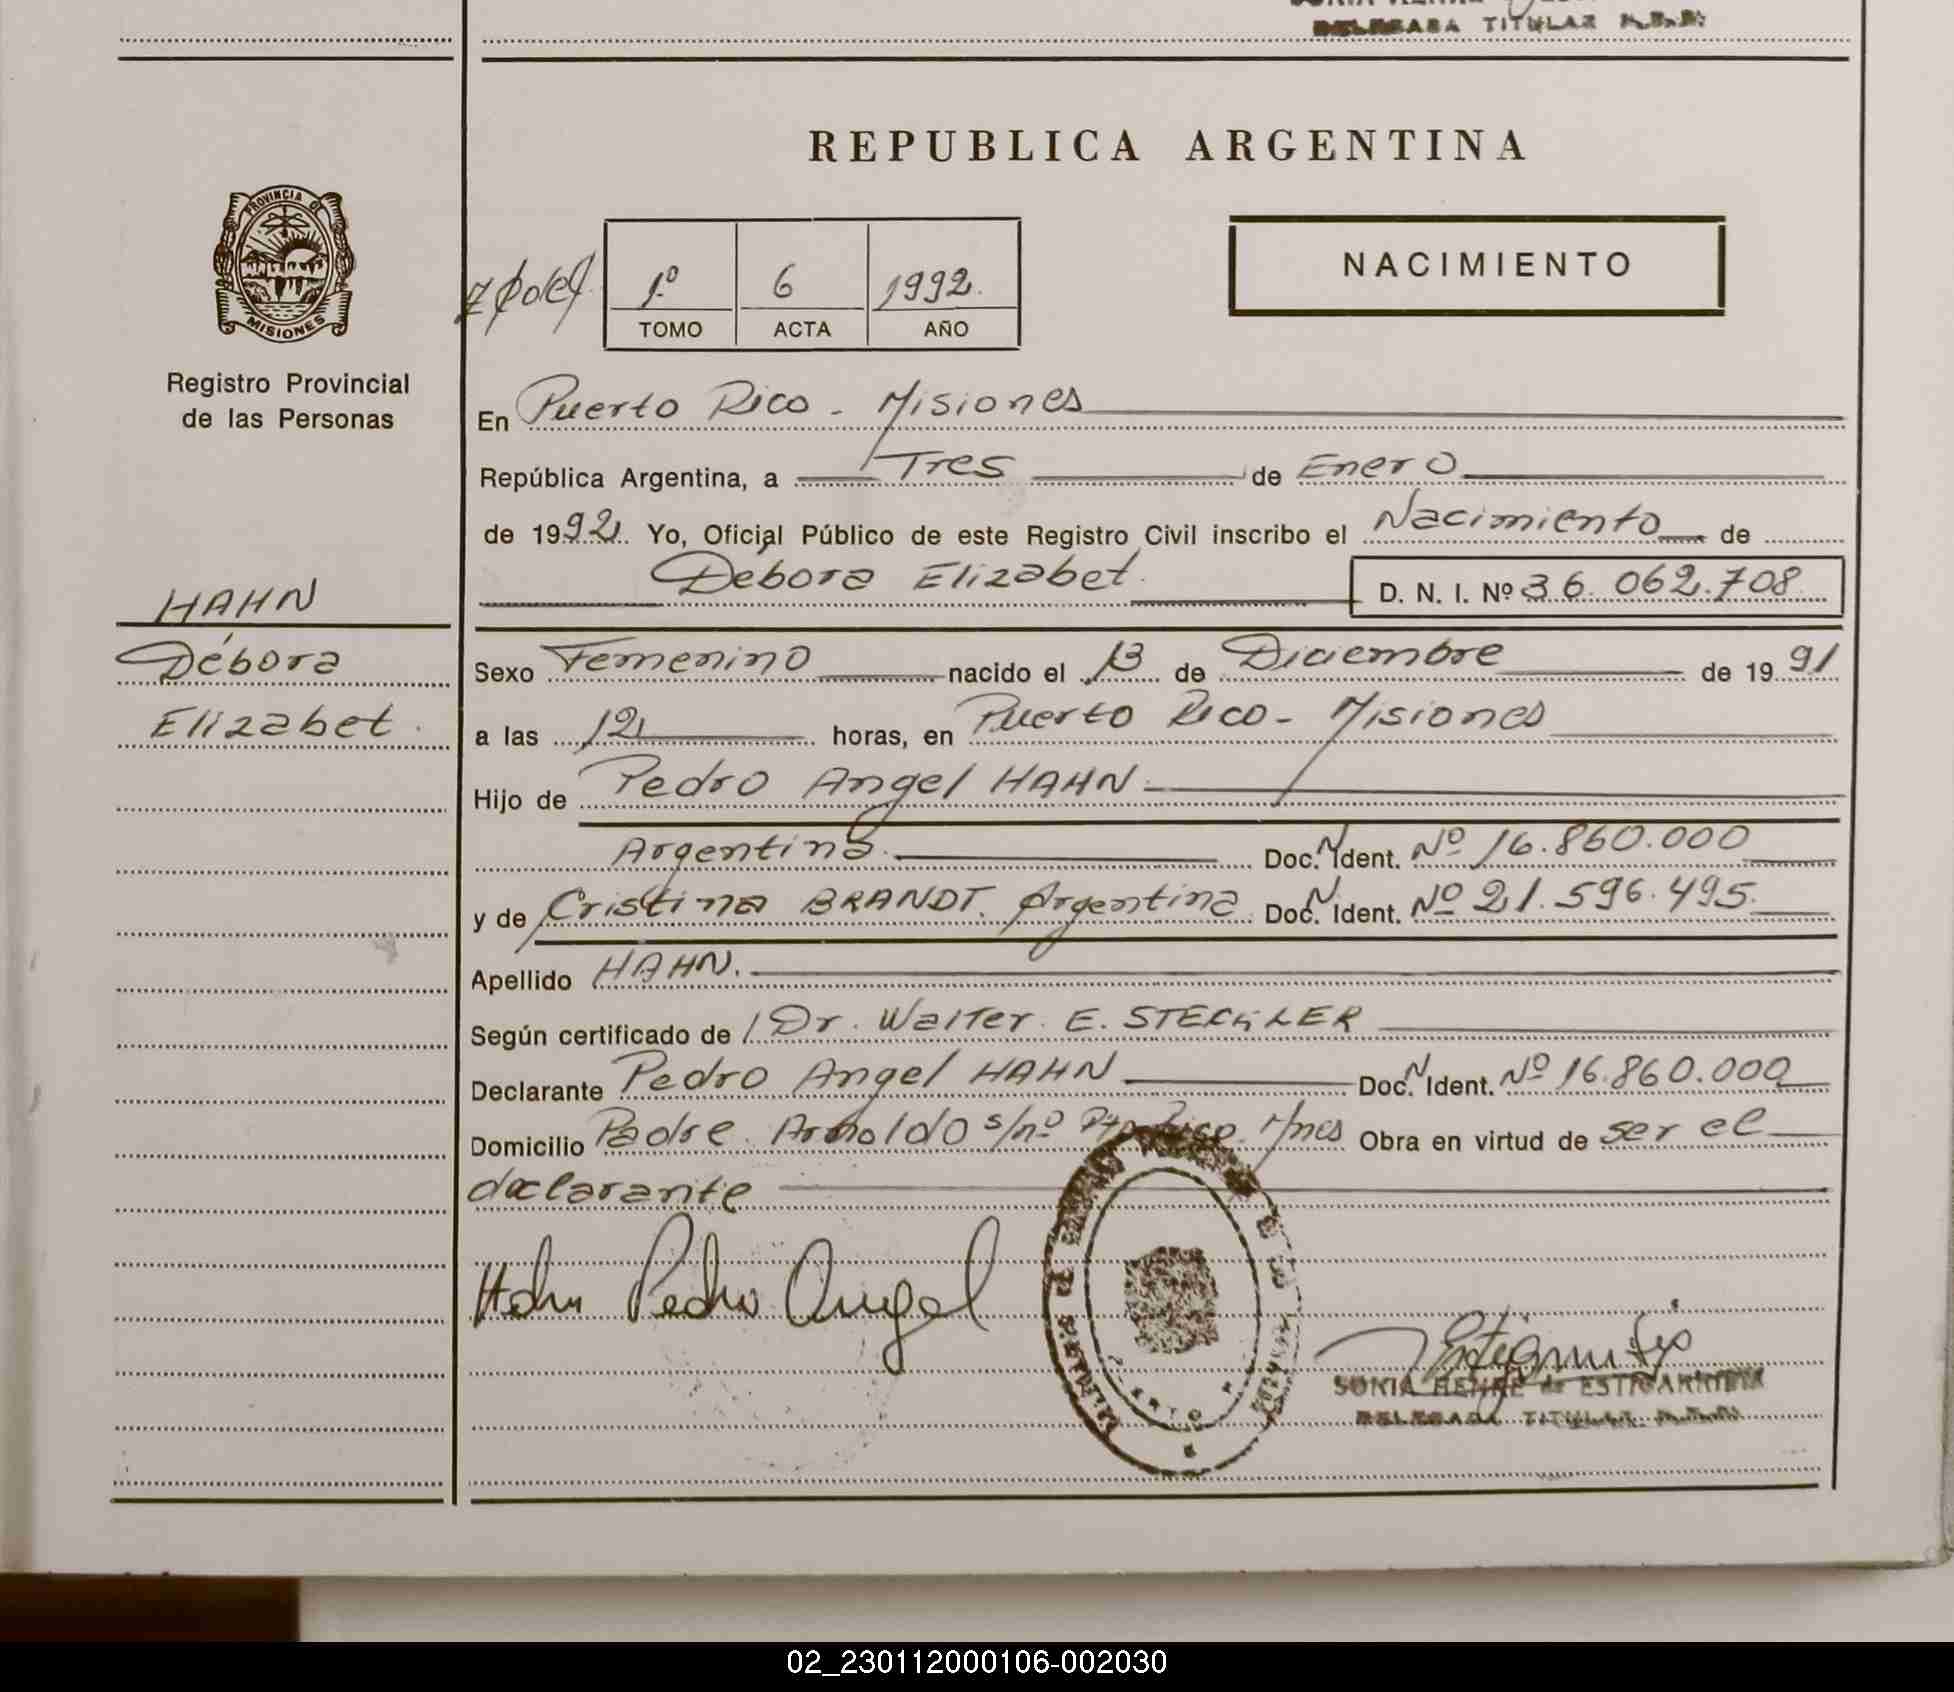 DELEGADA TITULAR R.P.P.
REPUBLICA ARGENTINA
PROVINCIA DE
MISIONES
Registro Provincial
de las Personas
1º 6 1992.
TOMO ACTA AÑO
NACIMIENTO
En Puerto Rico - Misiones
República Argentina, a Tres de Enero
de 1992. Yo, Oficial Público de este Registro Civil inscribo el Nacimiento de
Débora Elizabet. D. N. I. Nº 36.062.708
HAHN
Débora
Elizabet.
Sexo Femenino nacido el 13 de Diciembre de 1991
a las 12 horas, en Puerto Rico - Misiones
Hijo de Pedro Angel HAHN
Argentina. Doc. N. Ident. Nº 16.860.000
y de Cristina BRANDT. Argentina Doc. N. Ident. Nº 21.596.495.
Apellido HAHN.
Según certificado de Dr. Walter E. STECKLER
Declarante Pedro Angel HAHN Doc. N. Ident. Nº 16.860.000
Domicilio Padre Arnoldo s/nº Pto. Rico. Mnes Obra en virtud de ser el
declarante
Hahn Pedro Angel
SONIA HENRE de ESTIGARRIBIA
DELEGADA TITULAR R.P.P.
02_230112000106-002030